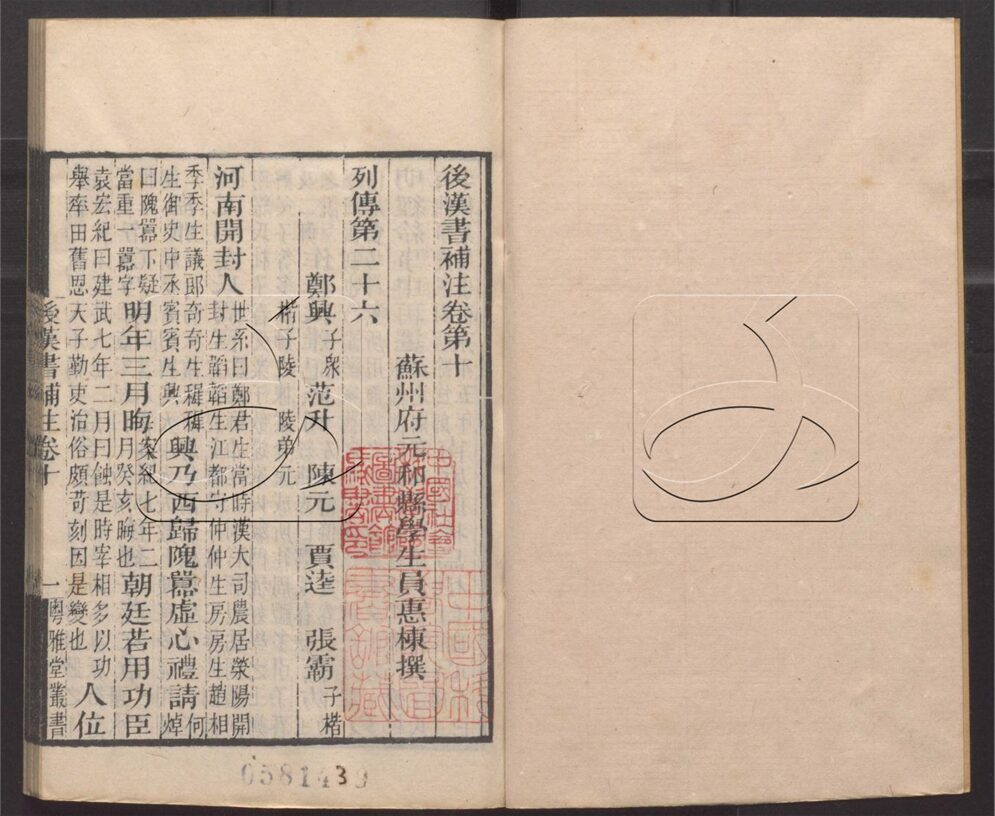 後漢書補注卷第十
蘇州府元和縣學生員惠棟撰
列傳第二十六
鄭興 子衆 范升 陳元 賈逵 張霸 子楷
楷子陵 陵弟元
河南開封人 世系曰鄭君生當時漢大司農居滎陽開封生韜韜生江都守仲仲生房房生趙相
季季生議郎奇奇生穉穉生御史中丞賓賓生興 興乃西歸隗囂虛心禮請 何焯
曰隗囂下疑當重一囂字 明年三月晦 紀七年二月癸亥晦也 朝廷若用功臣
袁宏紀曰建武七年二月日蝕是時宰相多以功舉率田舊恩天子勤吏治俗頗苛刻因是變也 人位
後漢書補注卷十 一 粵雅堂叢書
0581439